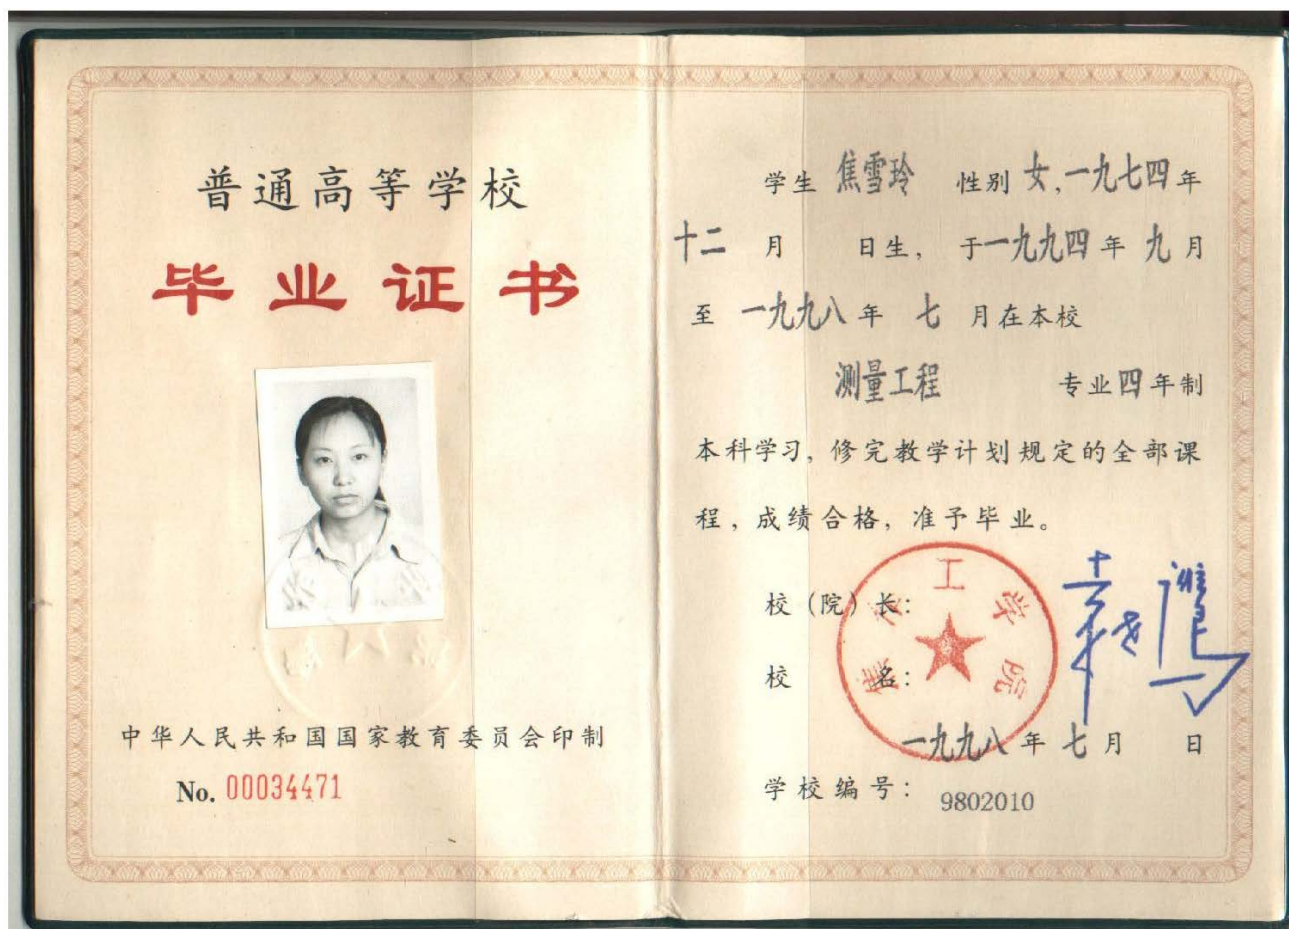 普通高等学校
毕业证书
中华人民共和国国家教育委员会印制
No. 00034471
学生 焦雪玲 性别 女,一九七四年
十二 月 日生, 于一九九四年 九月
至 一九九八年 七 月在本校
测量工程 专业四年制
本科学习, 修完教学计划规定的全部课
程, 成绩合格, 准予毕业。
校(院)长:
校 名:
工学院
一九九八年 七月 日
学校编号: 9802010